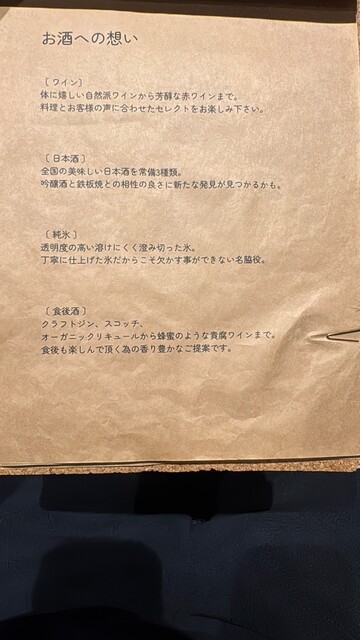 お酒への想い
〔 ワイン〕
体に嬉しい自然派ワインから芳醇な赤ワインまで。
料理とお客様の声に合わせたセレクトをお楽しみ下さい。
〔 日本酒 〕
全国の美味しい日本酒を常備3種類。
吟醸酒と鉄板焼との相性の良さに新たな発見が見つかるかも。
〔 純氷 〕
透明度の高い溶けにくく澄み切った氷。
丁寧に仕上げた氷だからこそ欠かす事ができない名脇役。
〔 食後酒 〕
クラフトジン、スコッチ、
オーガニックリキュールから蜂蜜のような貴腐ワインまで。
食後も楽しんで頂く為の香り豊かなご提案です。